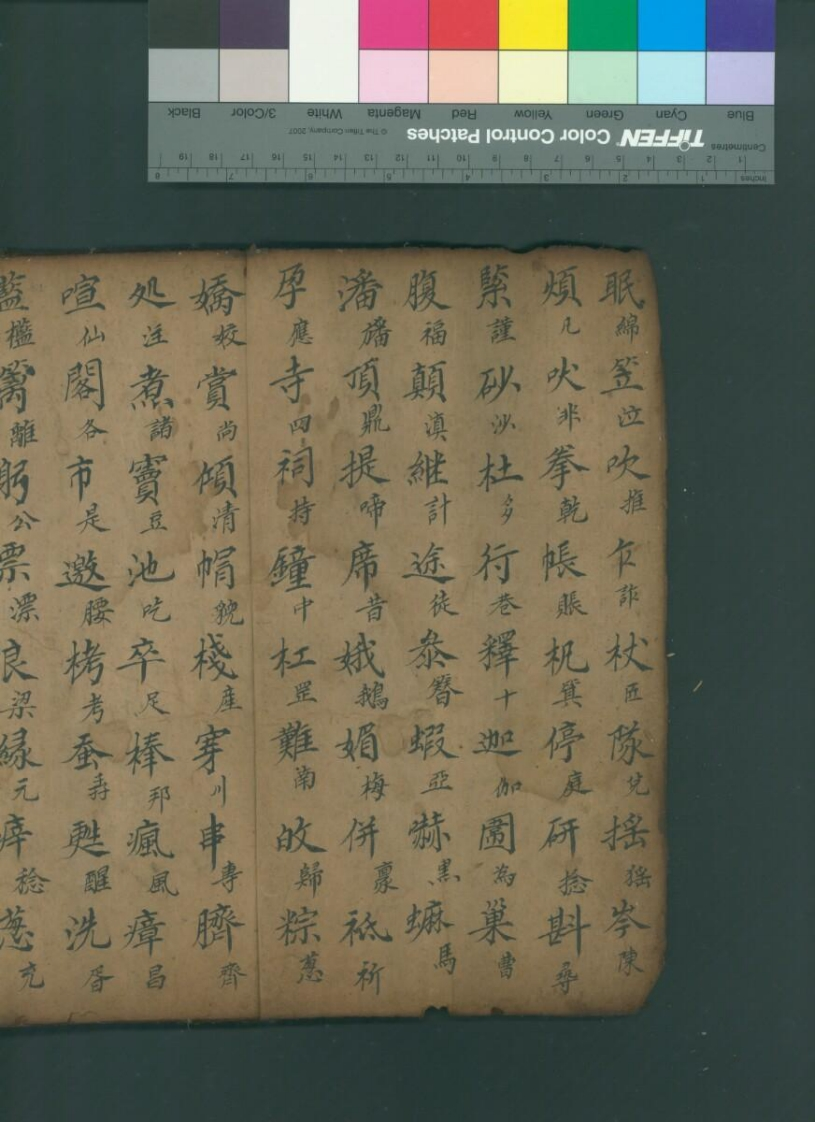 眠綿笠泣吹推乍詐杖匝隊兌搖猺岑陳
煩凡吠非拳乾帳賬机箕停庭研捻斟尋
緊謹砂沙杜多行巷釋十迦伽圍為巢曹
腹福顛滇継計途徒叅簪蝦亞赫黒蟒馬
潘旛頂鼎提啼席昔娥鵝媚梅併禀祗祈
孕應寺四祠持鐘中杠罡難南皈歸粽葱
嬌校賞尚傾清帽貌棧産穿川串專臍齊
処注煮諸竇豆池吃卒足棒邦瘋風瘴昌
喧仙閣各市是邀腰栲考蚕甦醒洗胥
藍檻离離躬公票漂良梁縁元瘁稔葱充
Blue
Cyan
Green
Yellow
Red
Magenta
White
3/Color
Black
TIFFEN Color Control Patches
© The Tiffen Company, 2007
Centimetres
1 2 3 4 5 6 7 8 9 10 11 12 13 14 15 16 17 18 19
Inches
1 2 3 4 5 6 7 8